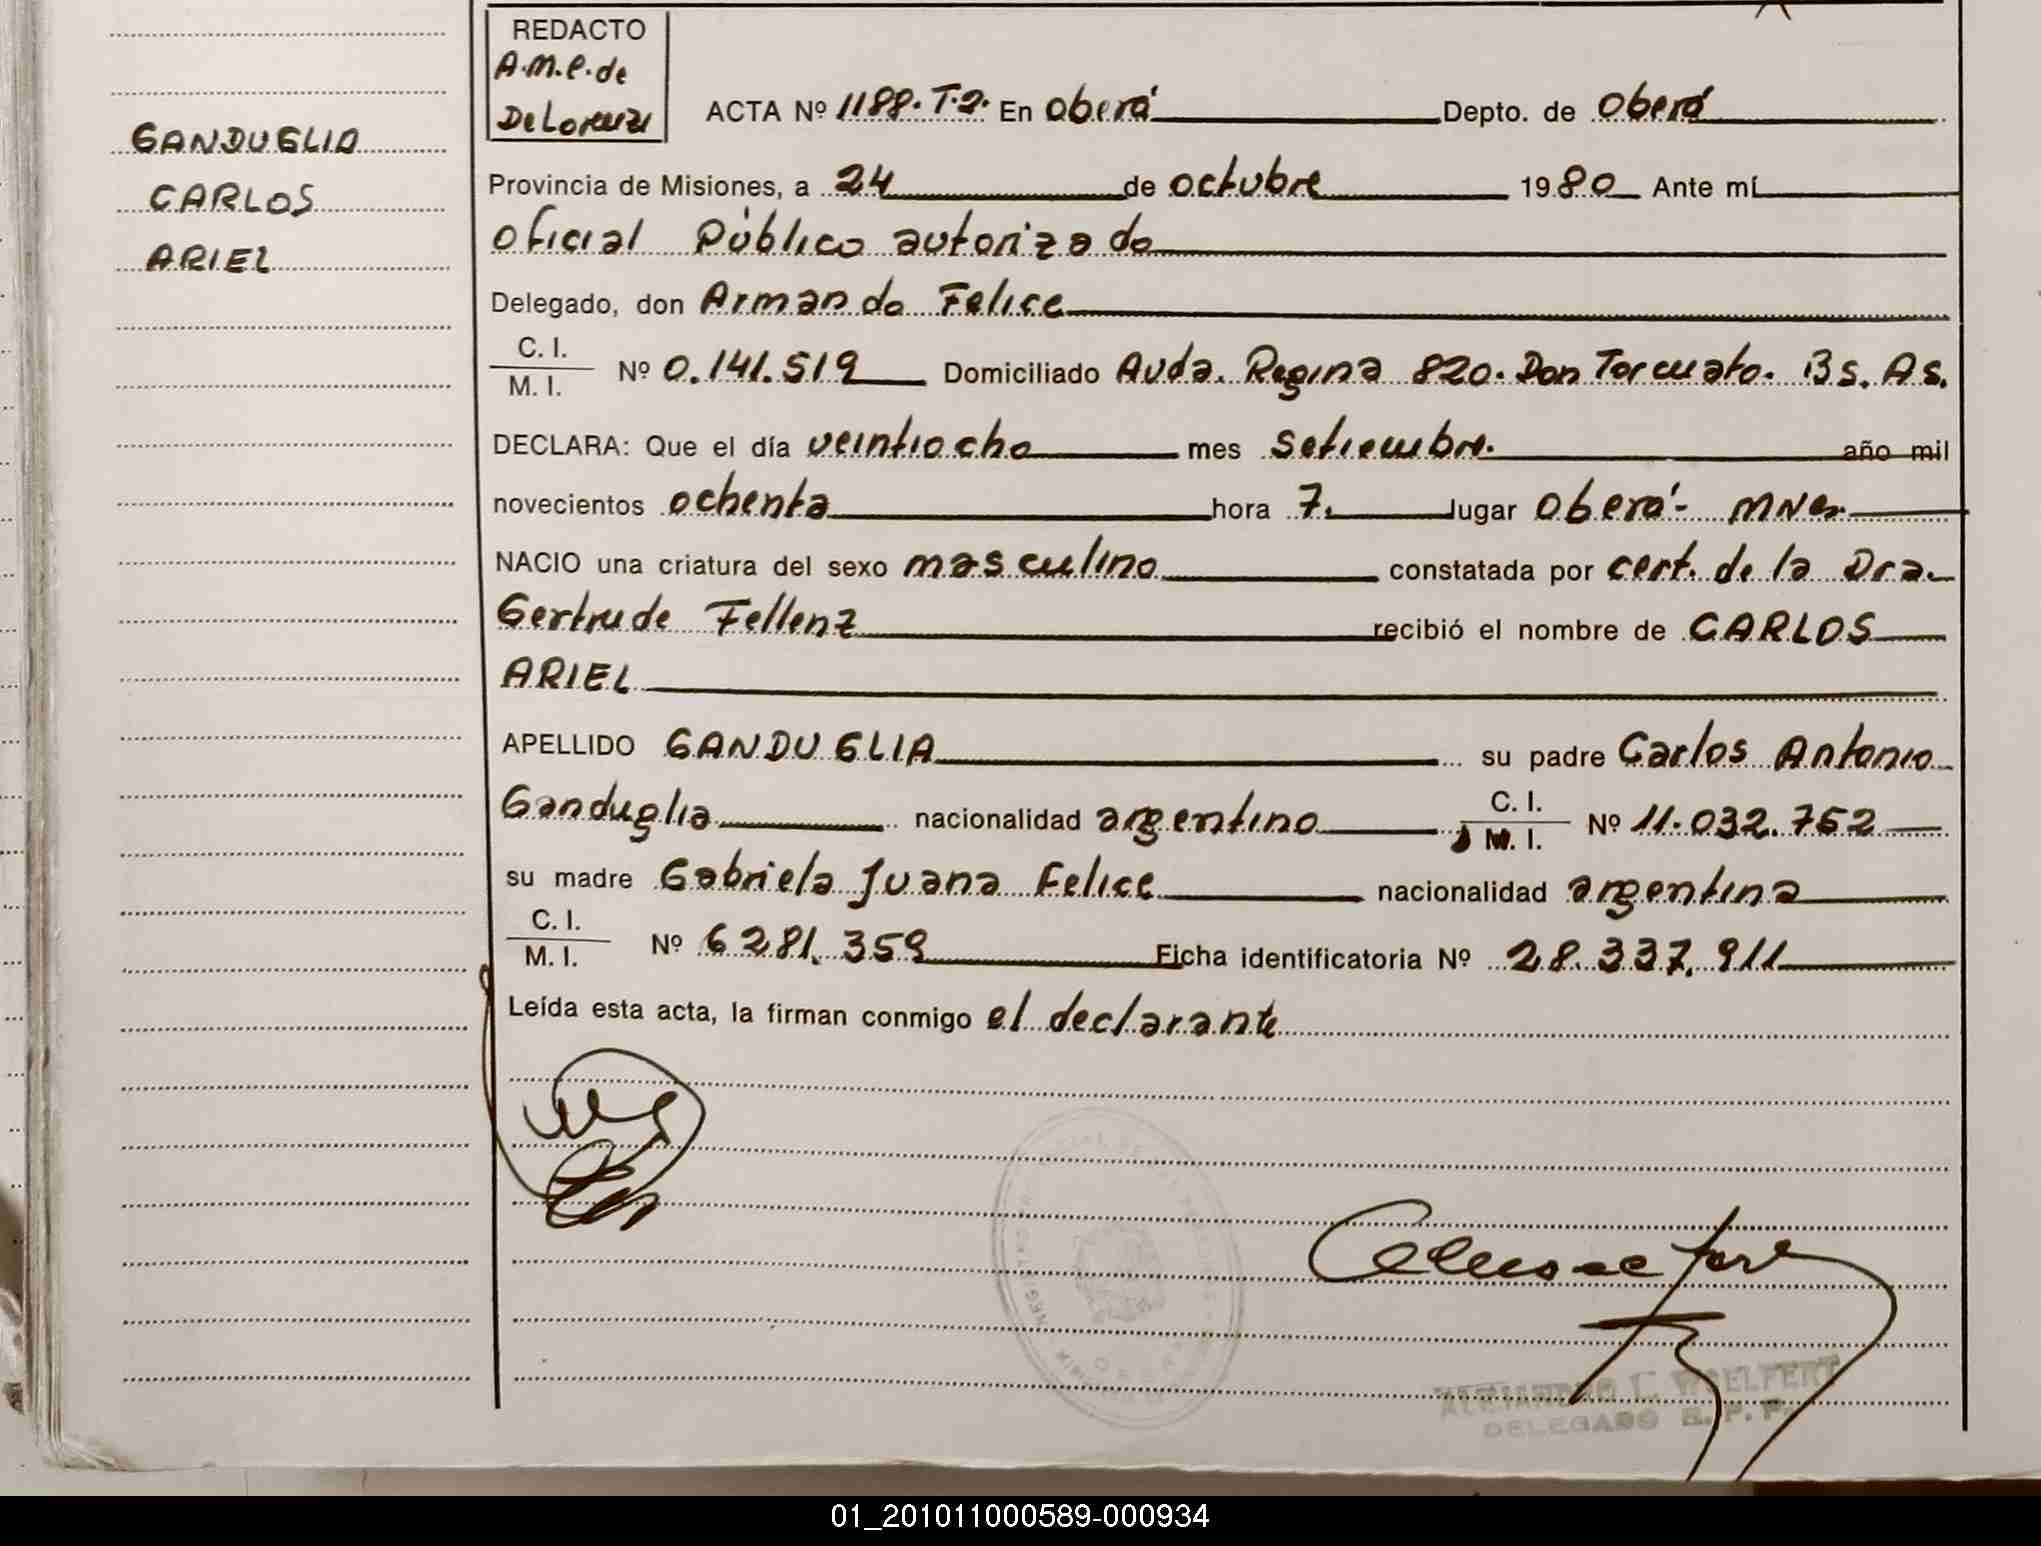 REDACTO
A.M.C. de
DeLorenzi
GANDUGLIA
CARLOS
ARIEL
ACTA Nº 1188. T.2. En Oberá Depto. de Oberá
Provincia de Misiones, a 24 de octubre 1980 Ante mí
Oficial Público autorizado
Delegado, don Armando Felice
C. I.
M. I. Nº 0.141.519 Domiciliado Avda. Regina 820. Don Torcuato. Bs. As.
DECLARA: Que el día veintiocho mes setiembre. año mil
novecientos ochenta hora 7. lugar Oberá- Mnes.
NACIO una criatura del sexo masculino constatada por cert. de la Dra.
Gertrude Fellenz recibió el nombre de CARLOS
ARIEL
APELLIDO GANDUGLIA su padre Carlos Antonio
Ganduglia nacionalidad argentino C. I. M. I. Nº 11.032.752
su madre Gabriela Juana Felice nacionalidad argentina
C. I.
M. I. Nº 6.281.359 Ficha identificatoria Nº 28.337.911
Leída esta acta, la firman conmigo el declarante
ALEJANDRO L. WOELFERT
DELEGADO R. P. P.
01_201011000589-000934